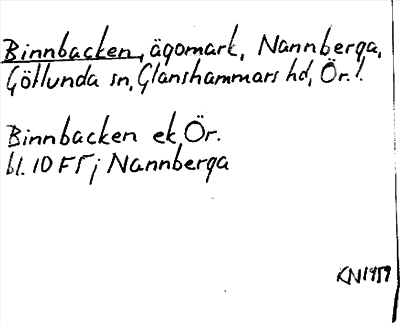 Binnbacken, ägomark, Nannberga,
Götlunda sn, Glanshammars hd, Ör. l.
Binnbacken ek Ör.
bl. 10 F5; Nannberga
KN1959